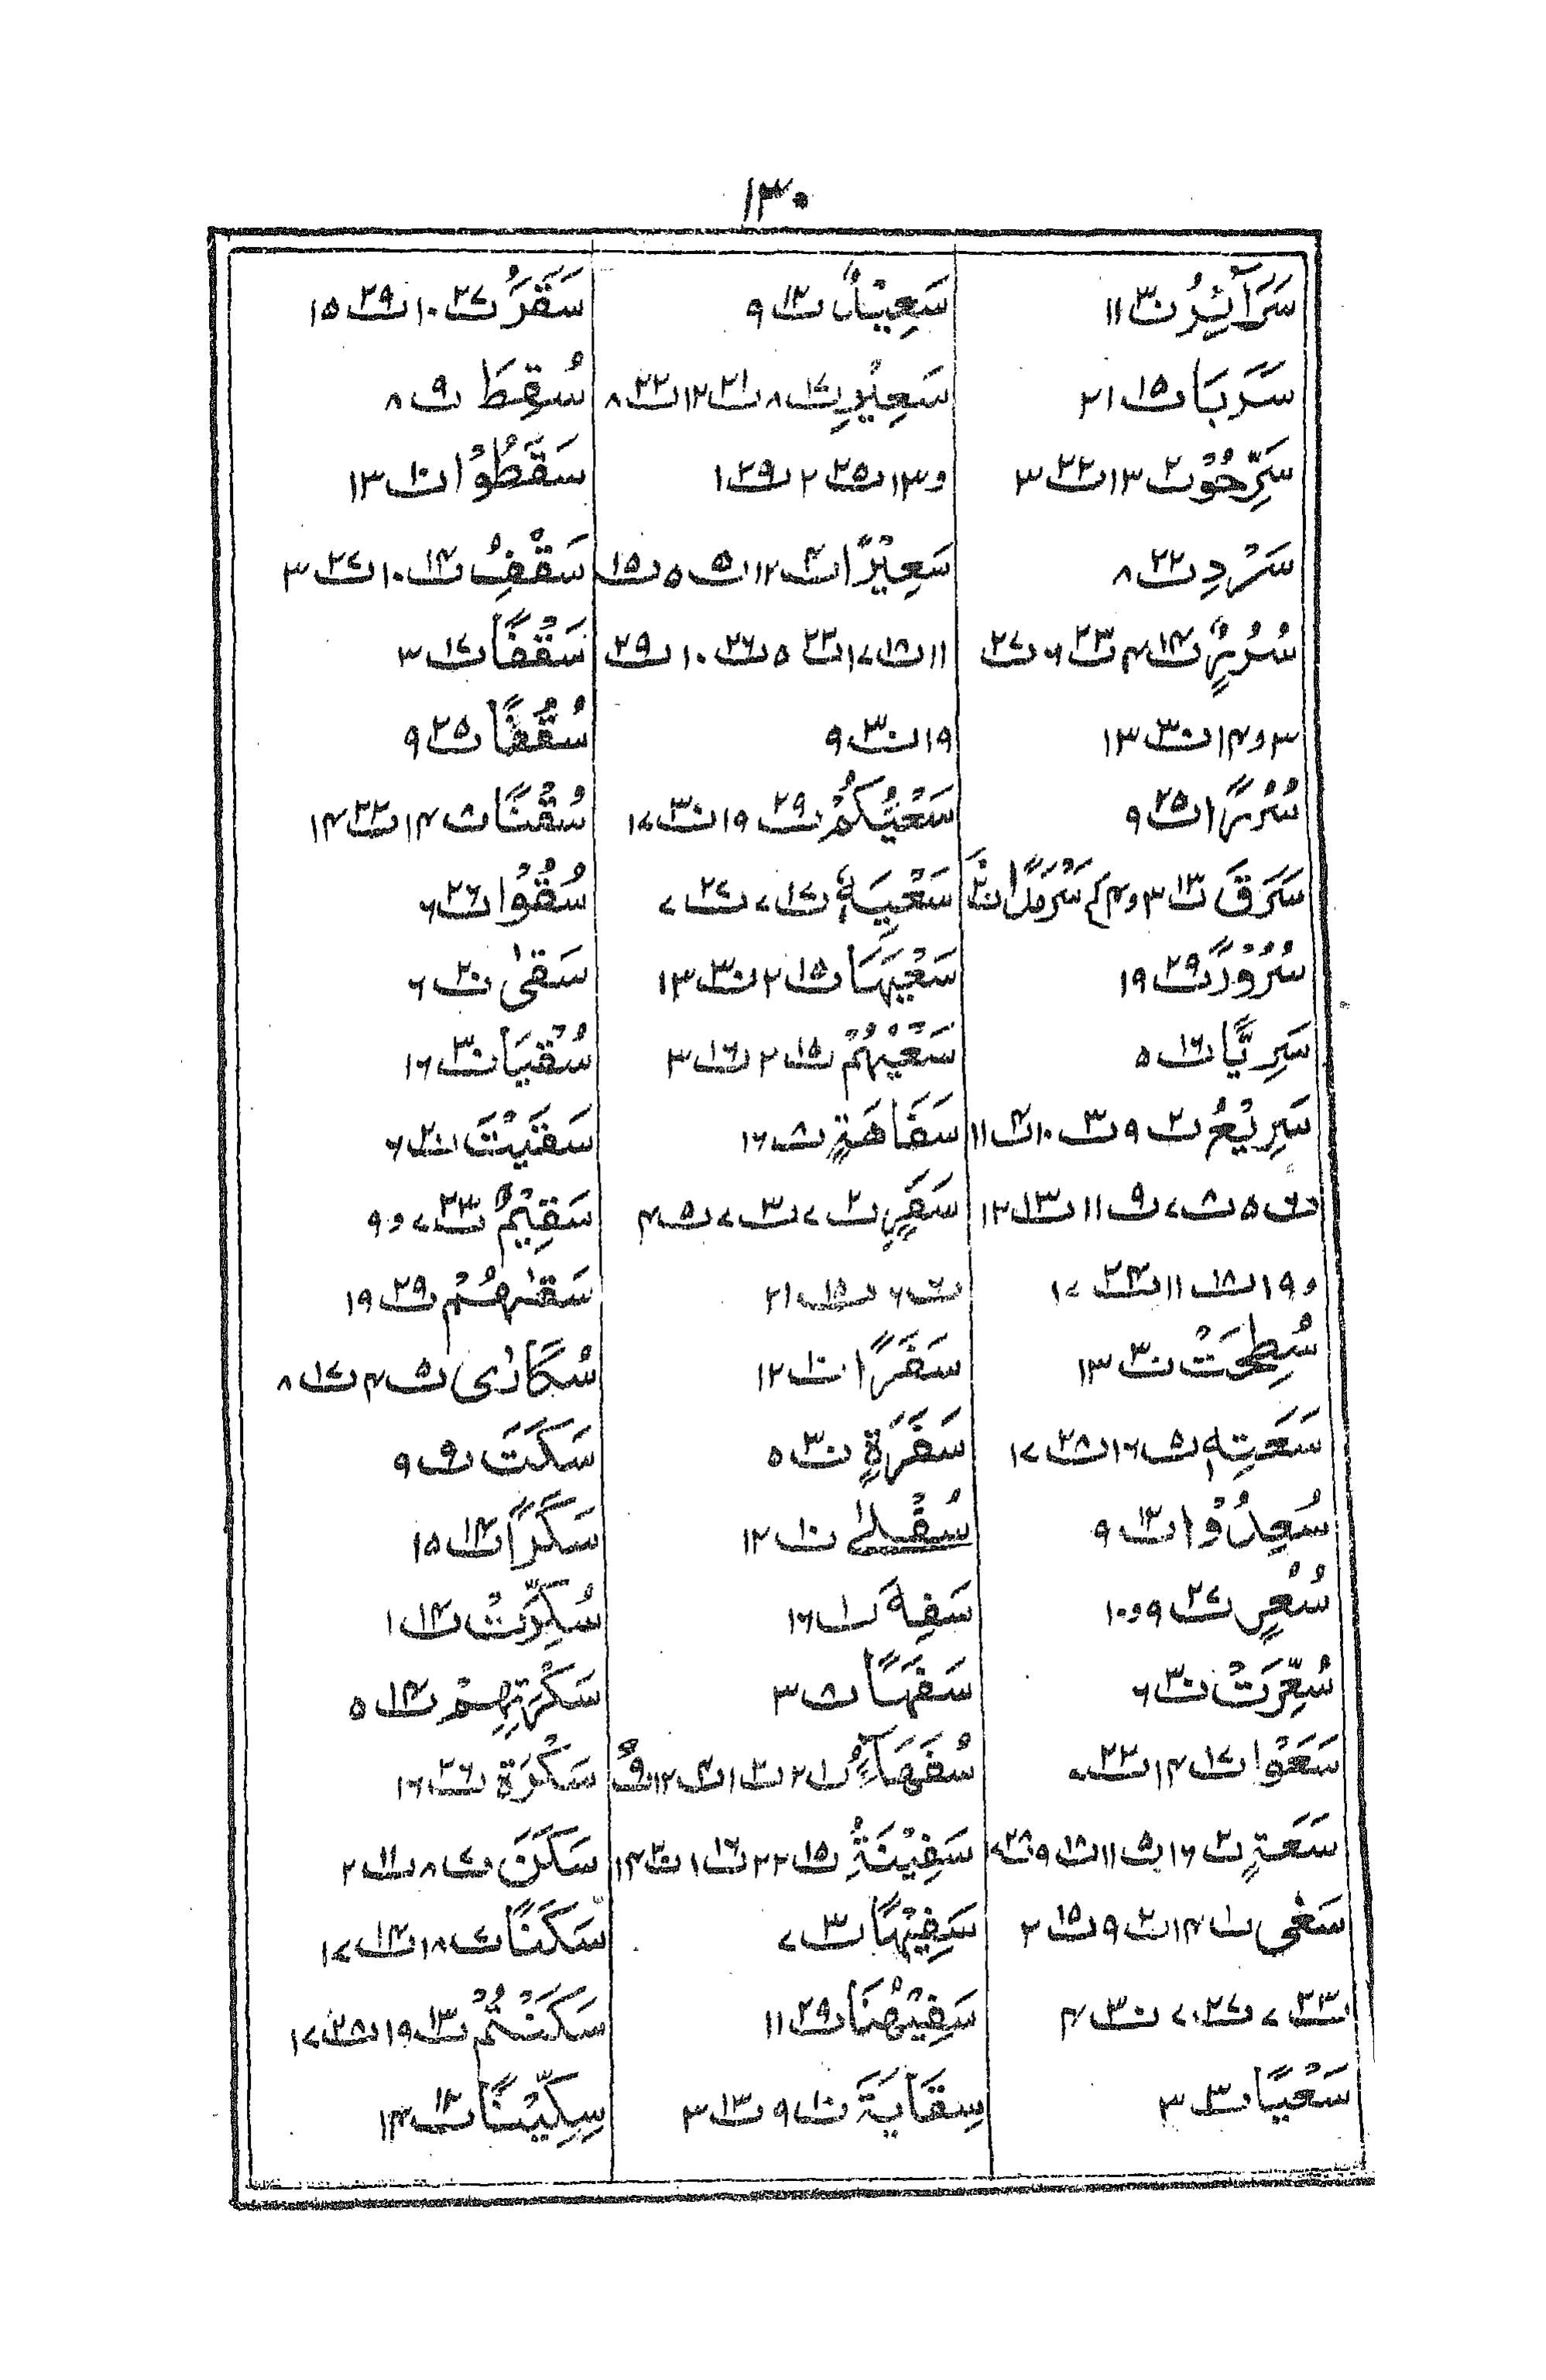 ۱۳۰
سَرَآئِرُ ت۳۰ ۱۱
سَرَبًا ت۱۵ ۲۱
سَرِّحُوْ ت۲ ۱۳ ت۲۲ ۳
سَرْدِ ت۲۲ ۸
سُرُرٍ ت۱۴ ۴ ت۲۳ ۶ ت۲۷
۳ و ۱۴ ت۳۰ ۱۳
سُرُرًا ت۲۵ ۹
سَرَقَ ت۱۳ ۳ و ۴
سُرُوْرًا ت۲۹ ۱۹
سَرِيًّا ت۱۶ ۵
سَرِيْعُ ت۲ ۹ ت۳ ۱۰ ت۴ ۱۱
ت۶ ۵ ت۸ ۷ ت۹ ۱۱ ت۱۳ ۱۲
و ۱۹ ت۱۸ ۱۱ ت۲۴ ۷
سُطِحَتْ ت۳۰ ۱۳
سَعَتِهٖ ت۵ ۱۶ ت۲۸ ۱۷
سُعِدُوْا ت۱۲ ۹
سُعُرٍ ت۲۷ ۹ و ۱۰
سُعِّرَتْ ت۳۰ ۶
سَعَوْا ت۱۷ ۱۴ ت۲۲
سَعَةٍ ت۲ ۱۶ ت۵ ۱۱ ت۱۸ ۹ ت۲۸
سَعٰى ت۱ ۱۴ ت۲ ۹ ت۱۵ ۲
ت۲۳ ۷ ت۲۷ ۷ ت۳۰ ۴
سَعْيًا ت۳ ۳
سَعِيْدٌ ت۱۲ ۹
سَعِيْرِ ت۱۷ ۸ ت۲۱ ۱۲ ت۲۲ ۸
و ۱۳ ت۲۵ ۲ ت۲۹ ۱
سَعِيْرًا ت۴ ۱۲ ت۵ ۵ ت۱۵
۱۱ ت۱۸ ۱۷ ت۲۲ ۵ ت۲۶ ۱۰ ت۲۹
۱۹ ت۳۰ ۹
سَعْيُكُمْ ت۲۹ ۱۹ ت۳۰ ۱۷
سَعْيِهٖ ت۱۷ ۷ ت۲۷ ۷
سَعْيَهَا ت۱۵ ۲ ت۳۰ ۱۳
سَعْيُهُمْ ت۱۵ ۲ ت۱۶ ۳
سَفَاهَةٍ ت۸ ۱۶
سَفَرٍ ت۲ ۷ ت۳ ۷ ت۵ ۴
ت۶ ۶ ت۱۵ ۲۱
سَفَرًا ت۱۰ ۱۲
سَفَرَةٍ ت۳۰ ۵
سُفْلٰى ت۱۰ ۱۲
سَفِهَ ت۱ ۱۶
سَفَهًا ت۸ ۳
سُفَهَآءُ ت۱ ۲ ت۲ ۱ ت۴ ۱۲ ت۹
سَفِيْنَةُ ت۱۵ ۲۲ ت۱۶ ۱ ت۲۰ ۱۴
سَفِيْهًا ت۳ ۷
سَفِيْهُنَا ت۲۹ ۱۱
سِقَايَةَ ت۱۰ ۹ ت۱۳ ۳
سَقَرَ ت۲۷ ۱۰ ت۲۹ ۱۵
سُقِطَ ت۹ ۸
سَقَطُوْا ت۱۰ ۱۳
سَقْفُ ت۱۴ ۱۰ ت۲۷ ۳
سَقْفًا ت۱۷ ۳
سُقُفًا ت۲۵ ۹
سُقْنَا ت۸ ۱۴ ت۲۲ ۱۴
سُقُوْا ت۲۶ ۶
سَقٰى ت۲۰ ۶
سُقْيَا ت۳۰ ۱۶
سَقَيْتَ ت۲۰ ۶
سَقِيْمٌ ت۲۳ ۷ و ۹
سَقٰهُمْ ت۲۹ ۱۹
سُكَارٰى ت۵ ۴ ت۱۷ ۸
سَكَتَ ت۹ ۹
سَكَرًا ت۱۴ ۱۵
سُكِّرَتْ ت۱۴ ۱
سَكْرَتِهِمْ ت۱۴ ۵
سَكْرَةُ ت۲۶ ۱۶
سَكَنَ ت۷ ۸ ت۱۱ ۲
سَكَنًا ت۷ ۱۸ ت۱۴ ۱۷
سَكَنْتُمْ ت۱۳ ۱۹ ت۲۸ ۱۷
سِكِّيْنًا ت۱۲ ۱۴